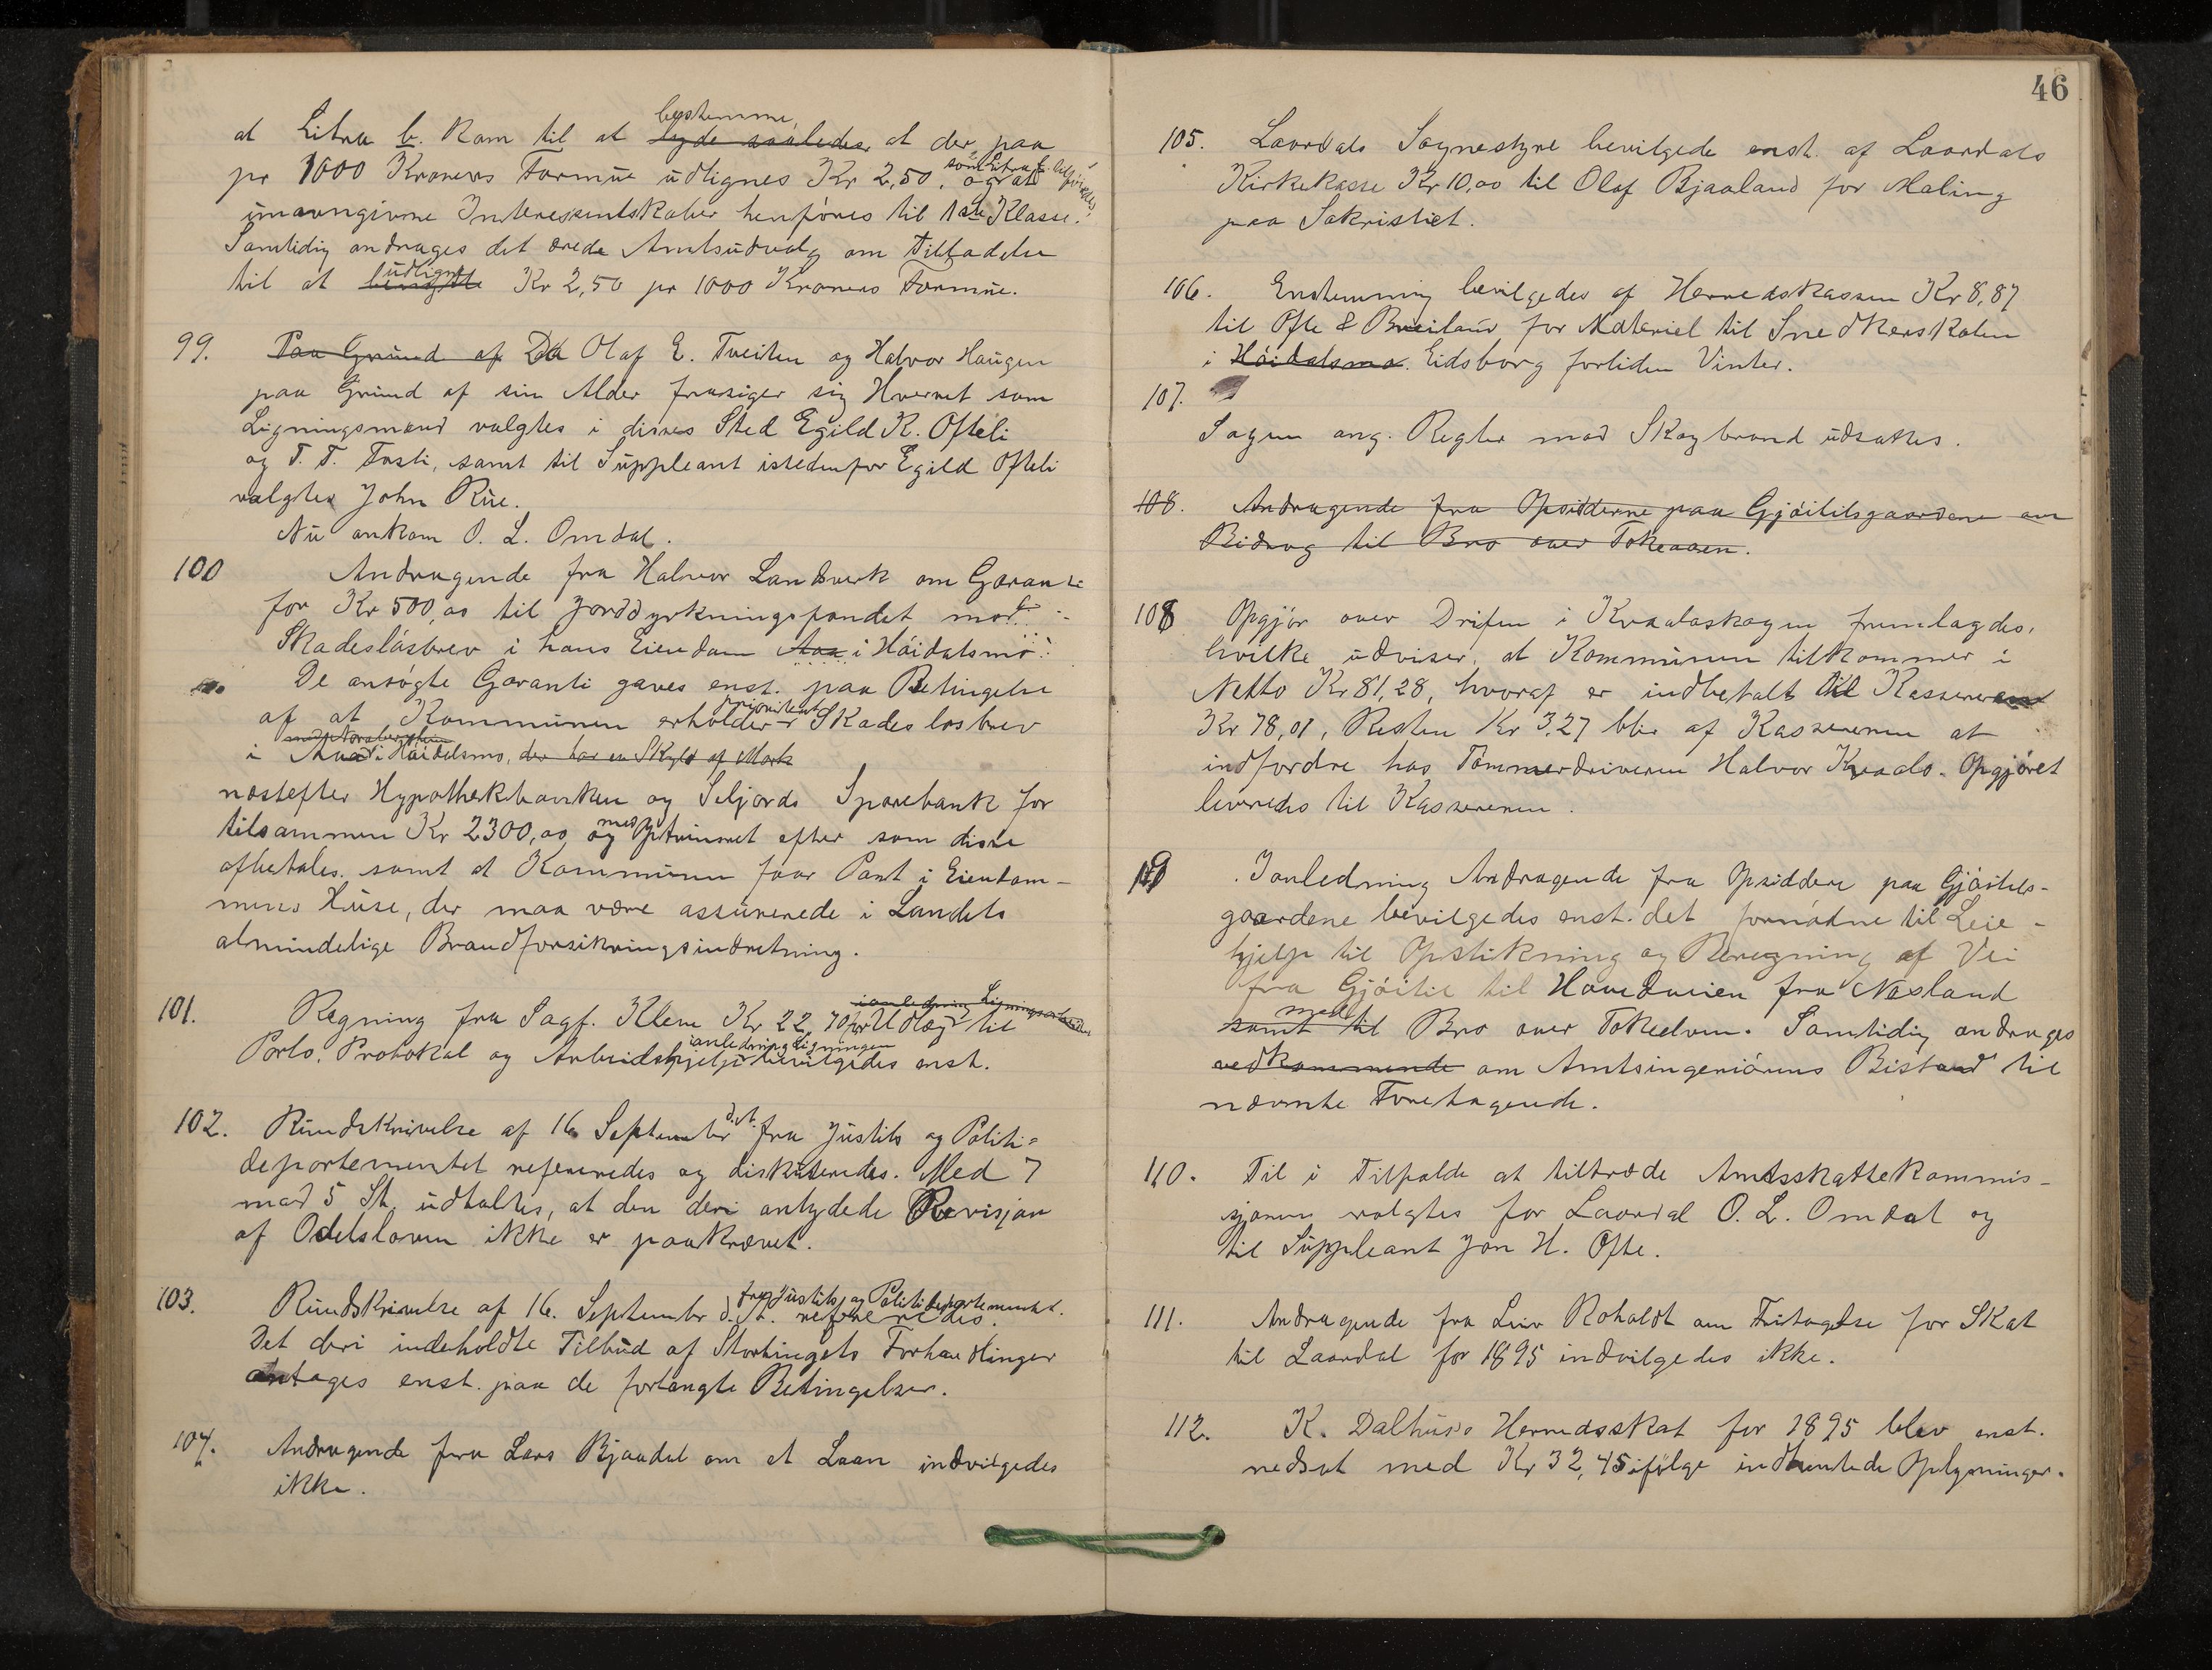 at Litra b. kom til at bestemme,
lyde saaledes at der paa
pr 1000 Kroners Formue udlignes Kr 2,50. som Litra c tilføies:
og at
unavngivne Interessentskaber henføres til 1ste Klasse.
Samtidig andrages det ærede Amtsudvalg om Tilladelse
til at udligne Kr 2,50 pr 1000 Kroners Formue.
99. Paa Grund af Da Olaf E. Tveiten og Halvor Haugen
paa Grund af sin Alder frasiger sig Hvervet som
Ligningsmænd valgtes i disses Sted Egild K. Ofteli
og T. T. Fosli, samt til Suppleant istedenfor Egild Ofteli
valgtes John Rue.
Nu ankom O. L. Omdal.
100 Andragende fra Halvor Landsverk om Garanti
for Kr 500,00 til Jorddyrkningsfondet mod
Skadesløsbrev i hans Eiendom Aaa i Høidalsmo:
De ansøgte Garanti gaves enst. paa Betingelse
af at Kommunen erholder prioritert Skadesløsbrev
i i Høidalsmo, der har en Skyld af Mark
næstefter Hypothekbanken og Seljords Sparebank for
tilsammen Kr 2300,00 og med Optrinsret efter som disse
afbetales. samt at Kommunen faar Pant i Eiendom-
mens Huse, der maa være assurerede i Landets
almindelige Brandforsikringsindretning.
101. Regning fra Sagf. Klem Kr 22,70 for Udlæg til
ianledning Ligningsarbeidet
Porto, Protokol og Arbeidshjelp ianledning Ligningen bevilgedes enst.
102. Rundskrivelse af 16 September d.A. fra Justits og Politi-
departementet refereredes og diskuteredes. Med 7
mod 5 St. udtaltes, at den deri antydede Revisjon
af Odelsloven ikke er paakrævet.
103. Rundskrivelse af 16. September d.A. fra Justits og Politidepartementet. refereredes.
Det deri indeholdte Tilbud af Stortingets Forhandlinger
antages enst. paa de forlangte Betingelser.
104. Andragende fra Lars Bjaadal om et Laan indvilgedes
ikke.
46
105. Laardals Sognestyre bevilgede enst. af Laardals
Kirkekasse Kr 10,00 til Olaf Bjaaland for Maling
paa Sakristiet.
106. Enstemmig bevilgedes af Herredskassen Kr 8,87
til Ofte & Breiland for Materiel til Snedkerskolen
i Høidalsmo. Eidsborg forliden Vinter.
107.
Sagen ang. Regler mod Skogbrand udsattes.
108. Andragende fra Opsidderne paa Gjøitilsgaardene om
Bidrag til Bro over Tokeaaen.
108 Opgjør over Driften i Kvaalaskogen fremlagdes,
hvilke udviser, at Kommunen tilkommer i
Netto Kr 81,28, hvoraf er indbetalt til Kassereren
Kr 78,01, Resten Kr 3,27 blir af Kassereren at
indfordre hos Tømmerdriveren Halvor Kvaale. Opgjøret
leveredes til Kassereren.
109 Ianledning Andragende fra Opsiddere paa Gjøitils-
gaardene bevilgedes enst. det fornødne til Leie-
hjelp til Opstikning og Beregning af Vei
fra Gjøitil til Hovedveien fra Næsland
samt med til Bro over Tokeelven. Samtidig andrages
vedkommende om Amtsingeniørens Bistand til
nævnte Foretagende.
110. Til i Tilfælde at tiltræde Amtsskattekommis-
sjonen valgtes for Laardal O. L. Omdal og
til Suppleant Jon H. Ofte.
111. Andragende fra Leiv Roholdt om Fritagelse for Skat
til Laardal for 1895 indvilgedes ikke.
112. K. Dalhuss Herredsskat for 1895 blev enst.
nedsat med Kr 32,45 ifølge indhentede Oplysninger.